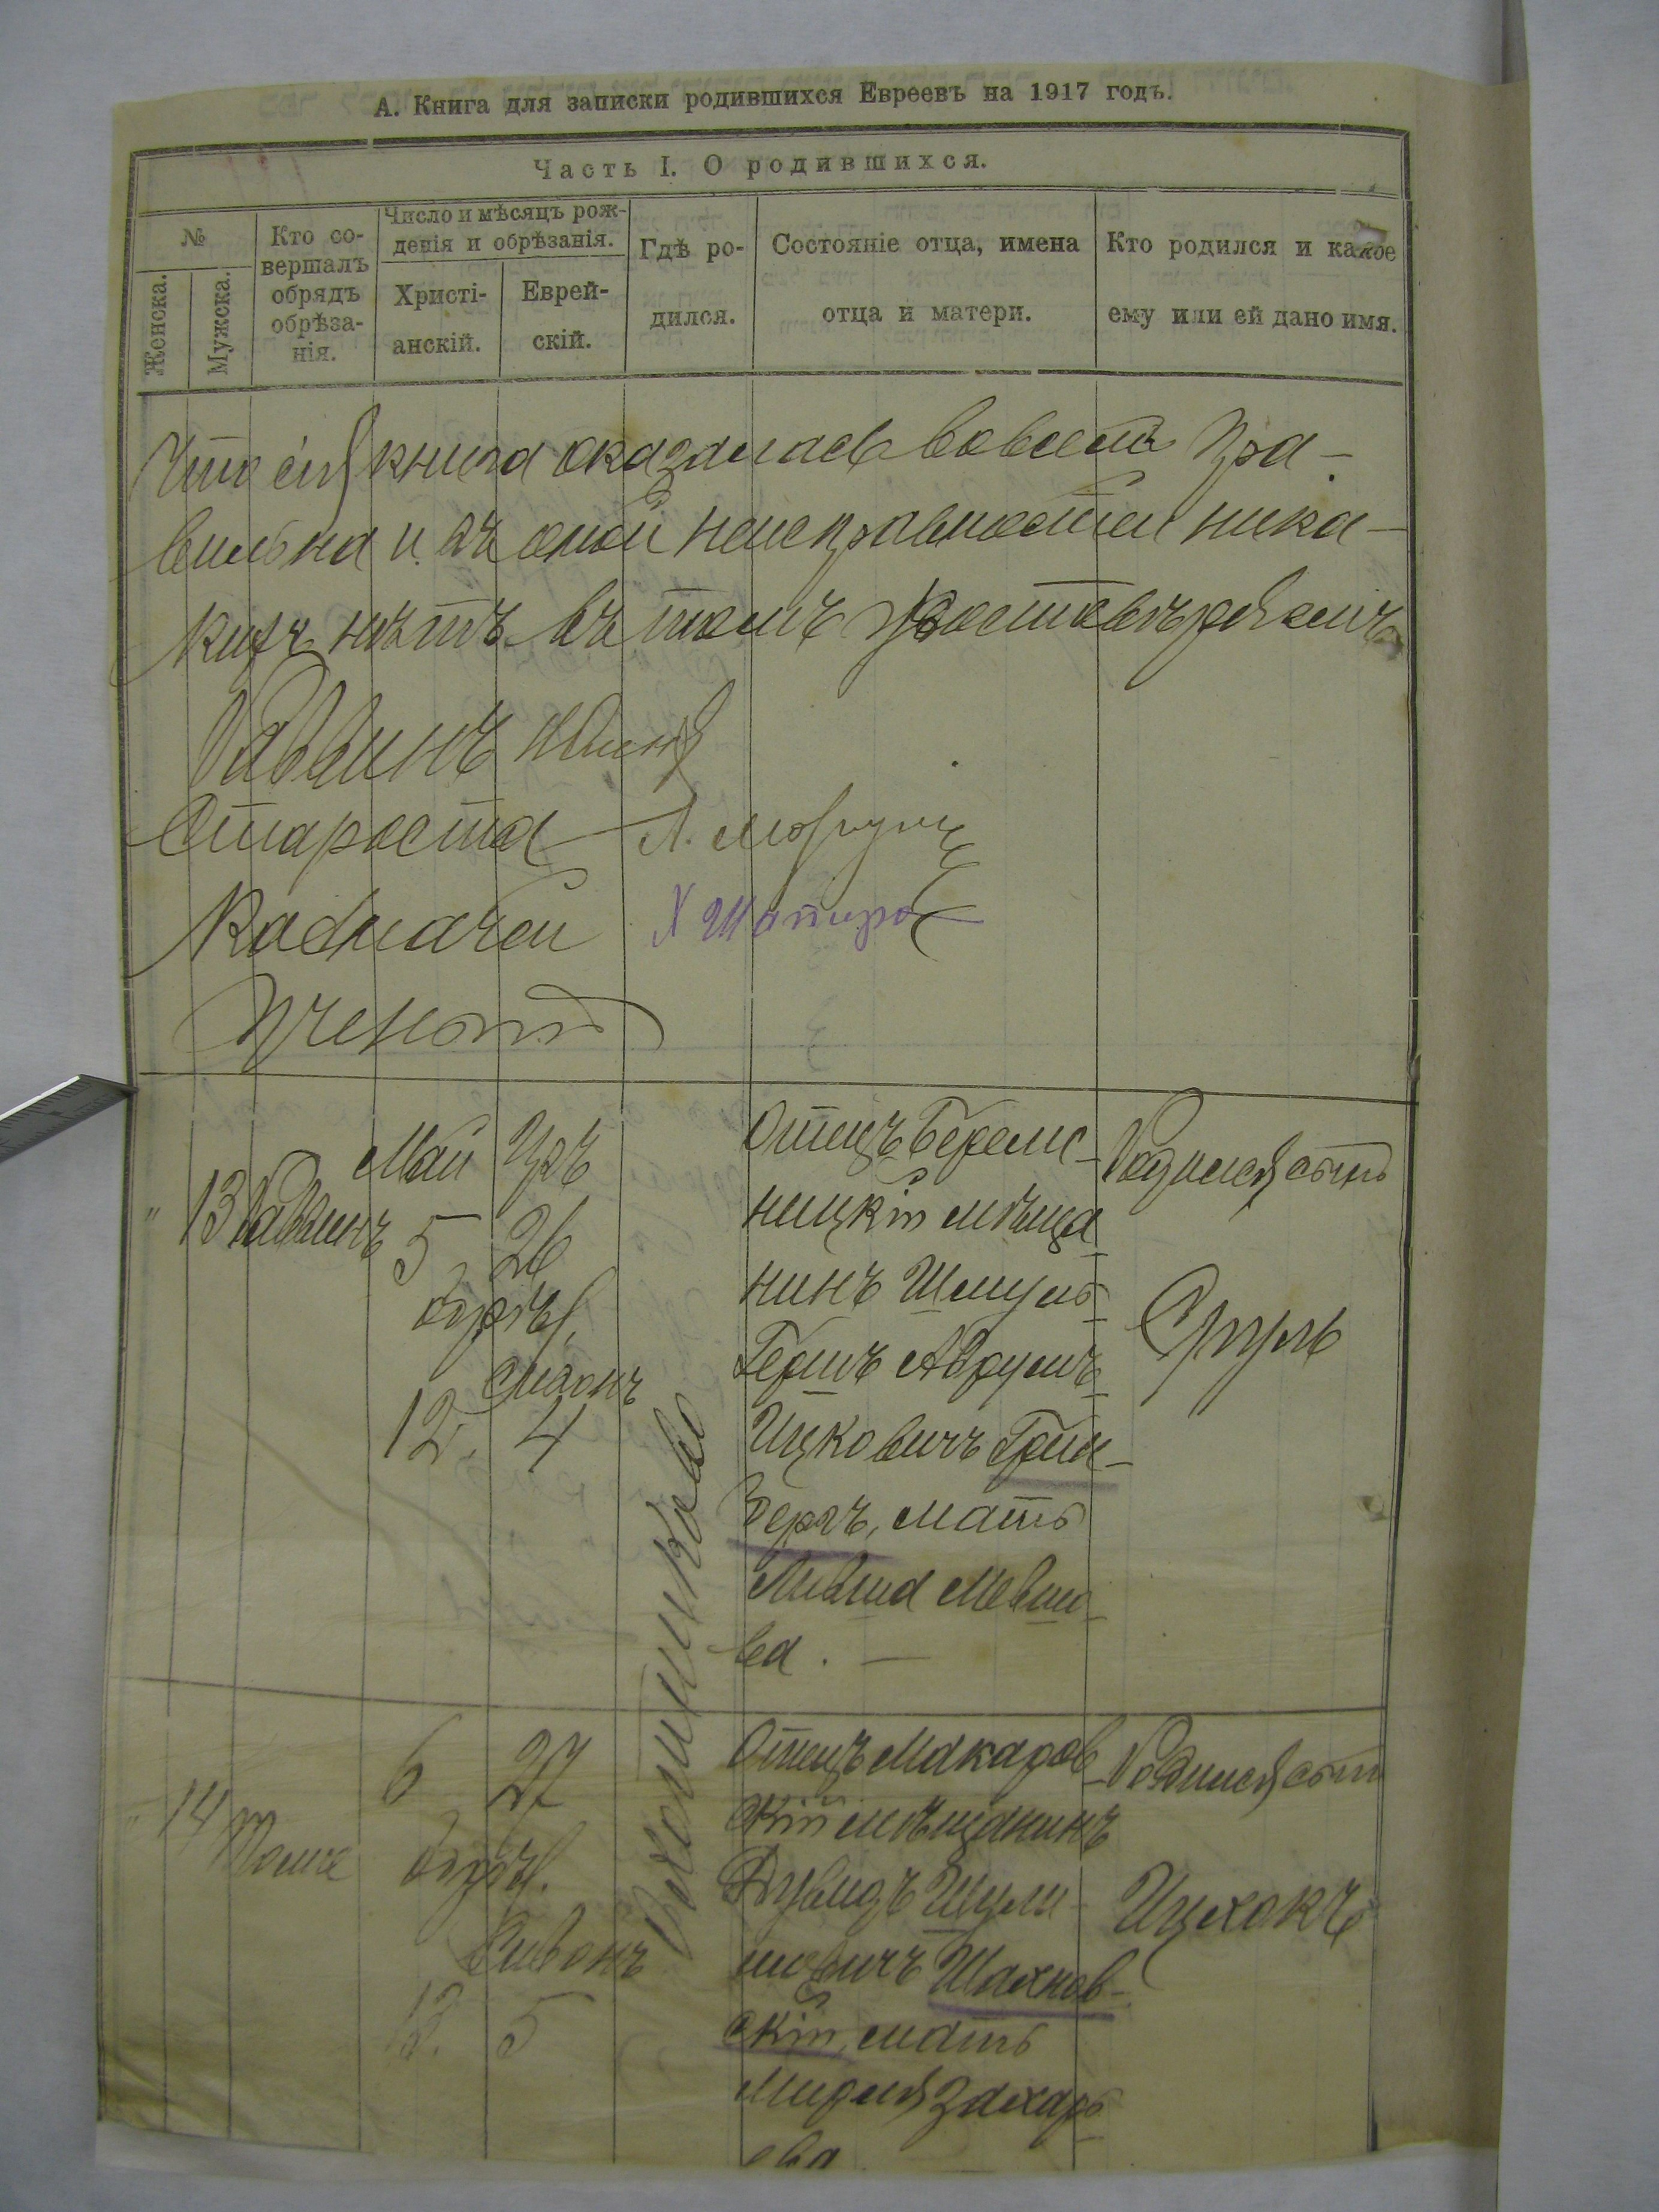 А. Книга для записки родившихся Евреевъ на 1917 годъ.
Часть I. О родившихся.
№
Женска.
Мужска.
Кто со-
вершалъ
обрядъ
обрѣза-
нія.
Число и мѣсяцъ рож-
денія и обрѣзанія.
Христі-
анскій.
Еврей-
скій.
Гдѣ ро-
дился.
Состояніе отца, имена
отца и матери.
Кто родился и какое
ему или ей дано имя.
Что сія книга оказалась вовсемъ пра-
вильна и въ оной неисправностей ника-
кихъ нѣтъ въ томъ удостовѣряемъ
Раввинъ
Староста
Казначей Х Шапиро
Ученый
" 13 Раввинъ
Май
5
обрѣз.
12.
Іяръ
26
Сивонъ
4
Отецъ
ницкій мѣща
нинъ Шмуль
Гершъ Аврумъ
Ицковичъ Грин-
бергъ, мать
ва. —
Родился сынъ
Сруль
" 14 Тоже
6
обрѣз.
13.
27
Сивонъ
5
Отецъ Макаров
скій мѣщанинъ
Дувидъ Шули
мовичъ Шахнов-
скій, мать
Мирля Захарь
ева
Родился сынъ
Ицхокъ